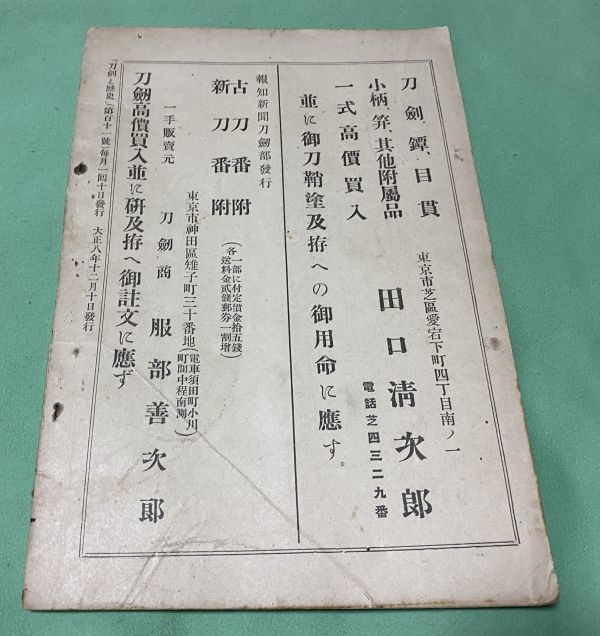 刀劍、鐔、目貫
小柄、笄、其他附屬品
一式高價買入
並に御刀鞘塗及拵への御用命に應す。
東京市芝區愛宕下町四丁目南ノ一
田口淸次郎
電話芝四三二九番
報知新聞刀劍部發行
古刀番附
新刀番附
(各一部に付定價金拾五錢
送料金貳錢郵券一割增)
一手販賣元
東京市神田區雉子町三十番地(電車須田町小川
町間中程南側)
刀劍商 服部善次郎
刀劍高價買入並に硏及拵へ御註文に應ず
「刀劍と歷史」第百十一號(每月一回十日發行) 大正八年十二月十日發行